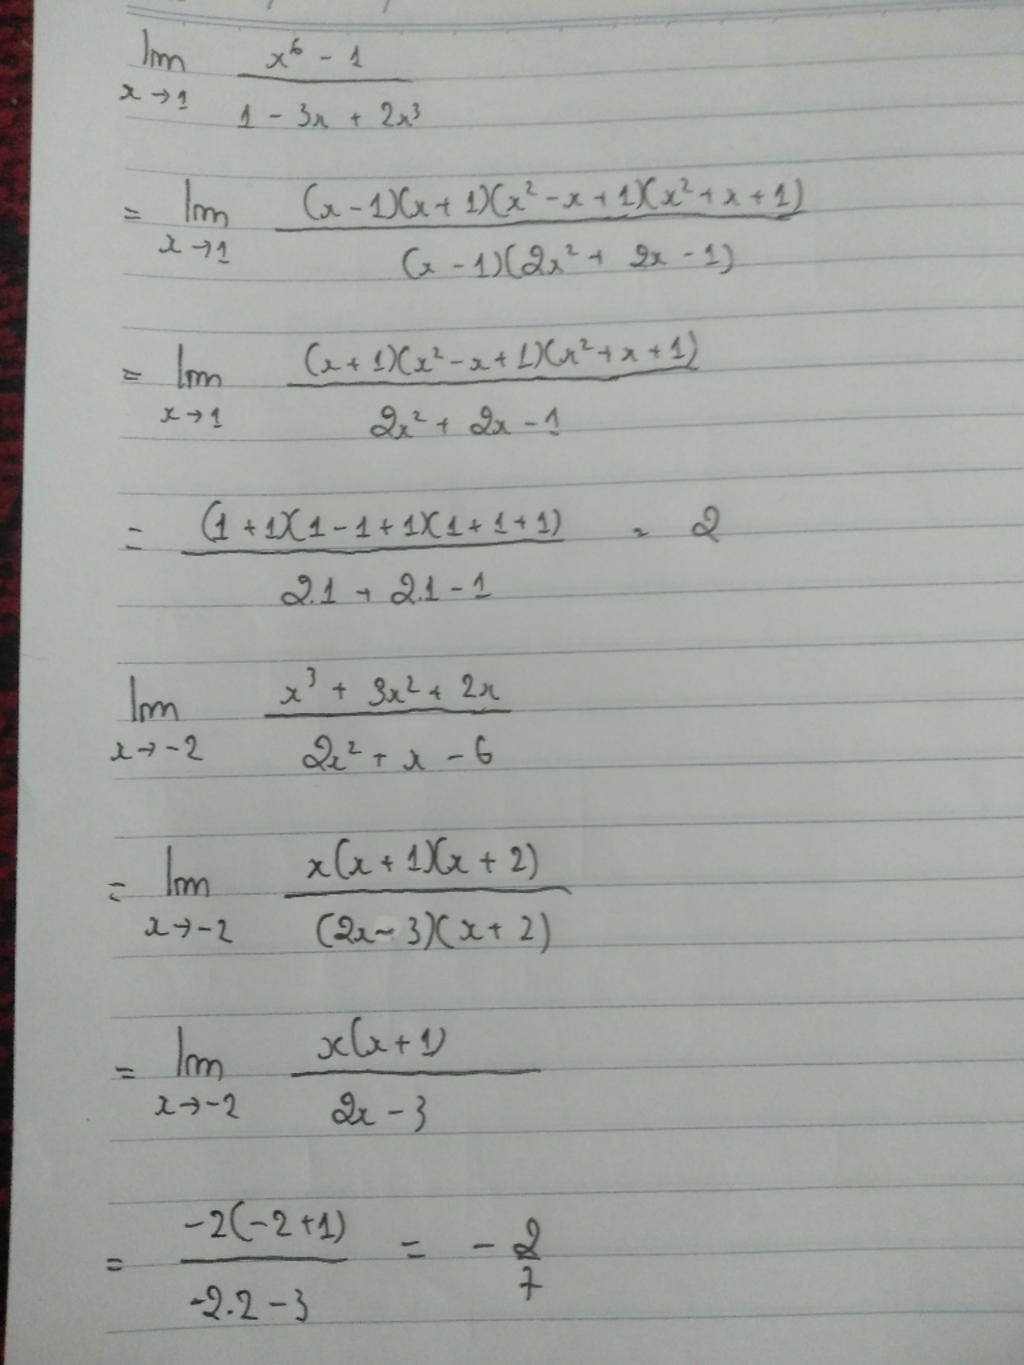 lim x⁶ - 1
x→1 1 - 3x + 2x³
= lim (x - 1)(x + 1)(x² - x + 1)(x² + x + 1)
x→1 (x - 1)(2x² + 2x - 1)
= lim (x + 1)(x² - x + 1)(x² + x + 1)
x→1 2x² + 2x - 1
= (1 + 1)(1 - 1 + 1)(1 + 1 + 1) = 2
2.1 + 2.1 - 1
lim x³ + 3x² + 2x
x→-2 2x² + x - 6
= lim x(x + 1)(x + 2)
x→-2 (2x - 3)(x + 2)
= lim x(x + 1)
x→-2 2x - 3
= -2(-2 + 1) = - 2
-2.2 - 3 7